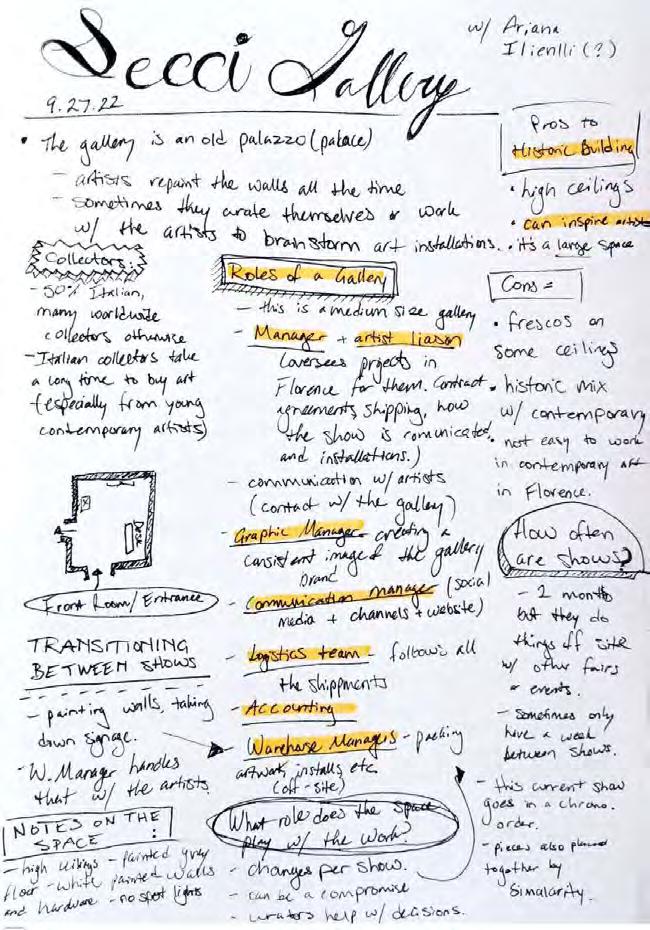 Secci Gallery
w/ Ariana
Ilienlli (?)
9.27.22
• The gallery is an old palazzo (palace)
- artists repaint the walls all the time
- sometimes they curate themselves or work
w/ the artists to brainstorm art installations.
Pros to
Historic Building
• high ceilings
• can inspire artists
• it's a large space
Collectors:
- 50% Italian,
many worldwide
collectors otherwise
- Italian collectors take
a long time to buy art
(especially from young
contemporary artists)
Roles of a Gallery
- this is a medium size gallery
- Manager + artist liason
(oversees projects in
Florence for them. Contract
agreements, shipping, how
the show is comunicated,
and installations.)
- communication w/ artists
(contact w/ the gallery)
- Graphic Manager - creating a
consistent image of the gallery
brand
- Communication manager (social
media + channels + website)
- Logistics team - follows all
the shippments
- Accounting
- Warehouse Managers - packing
artwork, installs, etc
(off-site)
Cons =
• frescos on
some ceilings
• historic mix
w/ contemporary
• not easy to work
in contemporary art
in Florence.
Desk
Front Room/Entrance
TRANSITIONING
BETWEEN SHOWS
- painting walls, taking
down signage.
- W. Manager handles
that w/ the artists.
NOTES ON THE
SPACE :
- high ceilings - painted grey
floor - white painted walls
and hardware - no spot lights
What role does the space
play w/ the work?
- changes per show.
- can be a compromise
- curators help w/ decisions.
How often
are shows?
- 2 month
but they do
things off site
w/ other fairs
& events.
- Sometimes only
have a week
between shows.
- this current show
goes in a chrono.
order.
- pieces also placed
together by
Simalarity.